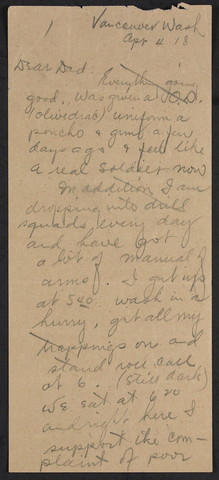 1
Vancouver Wash
Apr 4 18
Dear Dad:
Everything going
good. Was given a O.D.
(olivedrab) uniform a
poncho & gun a few
days ago & feel like
a real soldier now
In addition I am
dropping into drill
squads every day
and have got
a lot of manual of
arms. I get up
at 540 wash in a
hurry, get all my
trappings on and
stand roll call
at 6. (still dark)
We eat at 620
and right here I
support the com-
plaint of poor